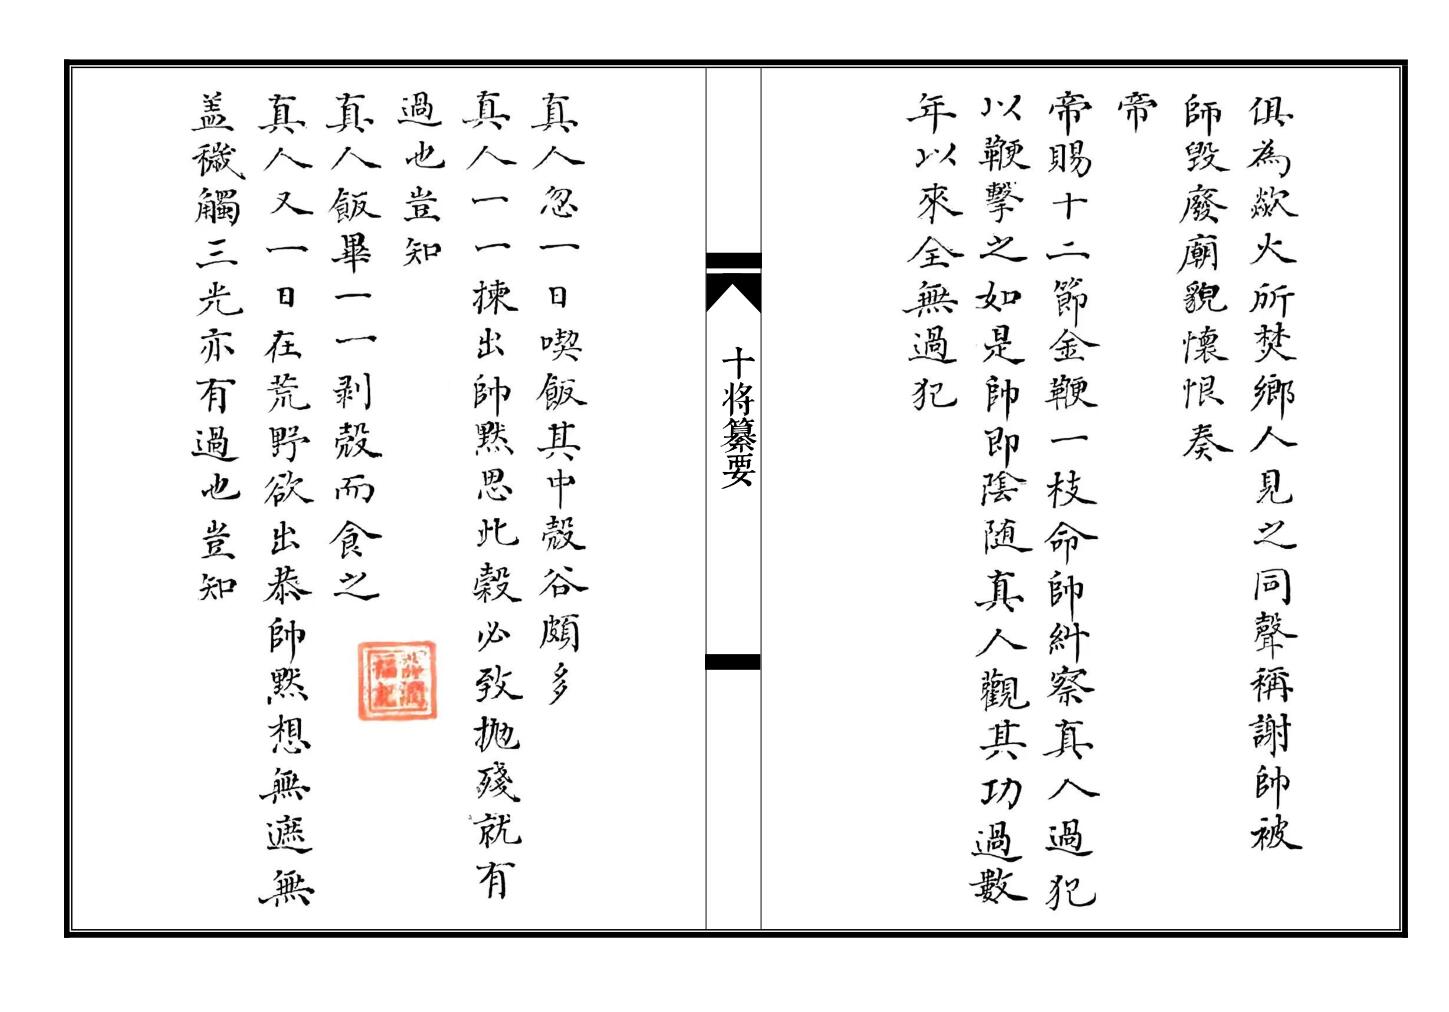 俱為歘火所焚鄉人見之同聲稱謝帥被
師毀廢廟貌懷恨奏
帝
帝賜十二節金鞭一枝命帥糾察真人過犯
以鞭擊之如是帥即陰随真人觀其功過數
年以來全無過犯
十将纂要
真人忽一日喫飯其中殼谷頗多
真人一一揀出帥默思此穀必致拋殘就有
過也豈知
真人飯畢一一剥殼而食之
真人又一日在荒野欲出恭帥默想無遮無
盖穢觸三光亦有過也豈知